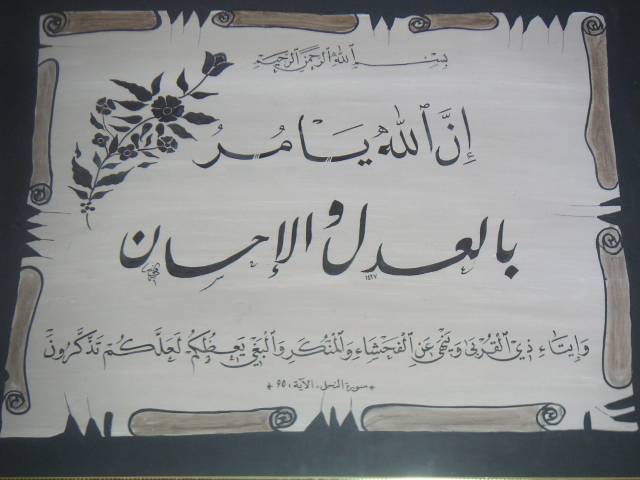 بسم الله الرحمن الرحيم
إِنَّ ٱللهَ يَامُرُ
بالعدل والإحسان
١٤٢٧
وَإِيتَاءِ ذِي الْقُرْبَى وَيَنْهَى عَنِ الْفَحْشَاءِ وَالْمُنْكَرِ وَالْبَغْيِ يَعِظُكُمْ لَعَلَّكُمْ تَذَكَّرُونَ
سورة النحل - الآية ، ٩٥